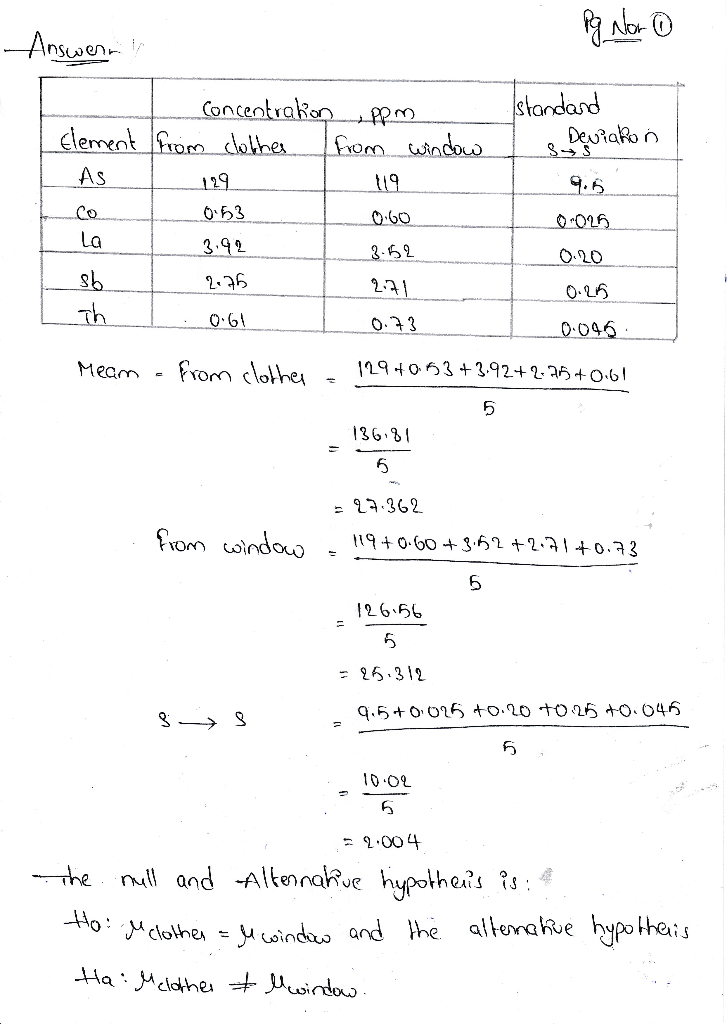 Pg No:- ①
Answer:-
Concentration, ppm Standard
Element from clothes from window Deviation
s → s
As 129 119 9.5
Co 0.53 0.60 0.025
La 3.92 3.52 0.20
Sb 2.75 2.71 0.25
Th 0.61 0.73 0.045
Mean = from clothes = 129+0.53+3.92+2.75+0.61
5
= 136.81
5
= 27.362
from window = 119+0.60+3.52+2.71+0.73
5
= 126.56
5
= 25.312
s → s = 9.5+0.025+0.20+0.25+0.045
5
= 10.02
5
= 2.004
The null and Alternative hypothesis is:
H0: μ clothes = μ window and the alternative hypothesis
Ha: μ clothes ≠ μ window.